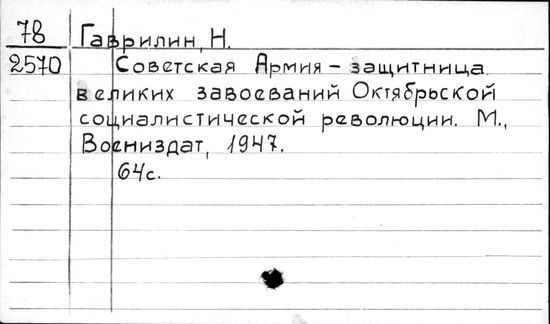 78 Гаврилин, Н.
2570 Советская Армия – защитница
великих завоеваний Октябрьской
социалистической революции. М.,
Воениздат, 1947.
64с.